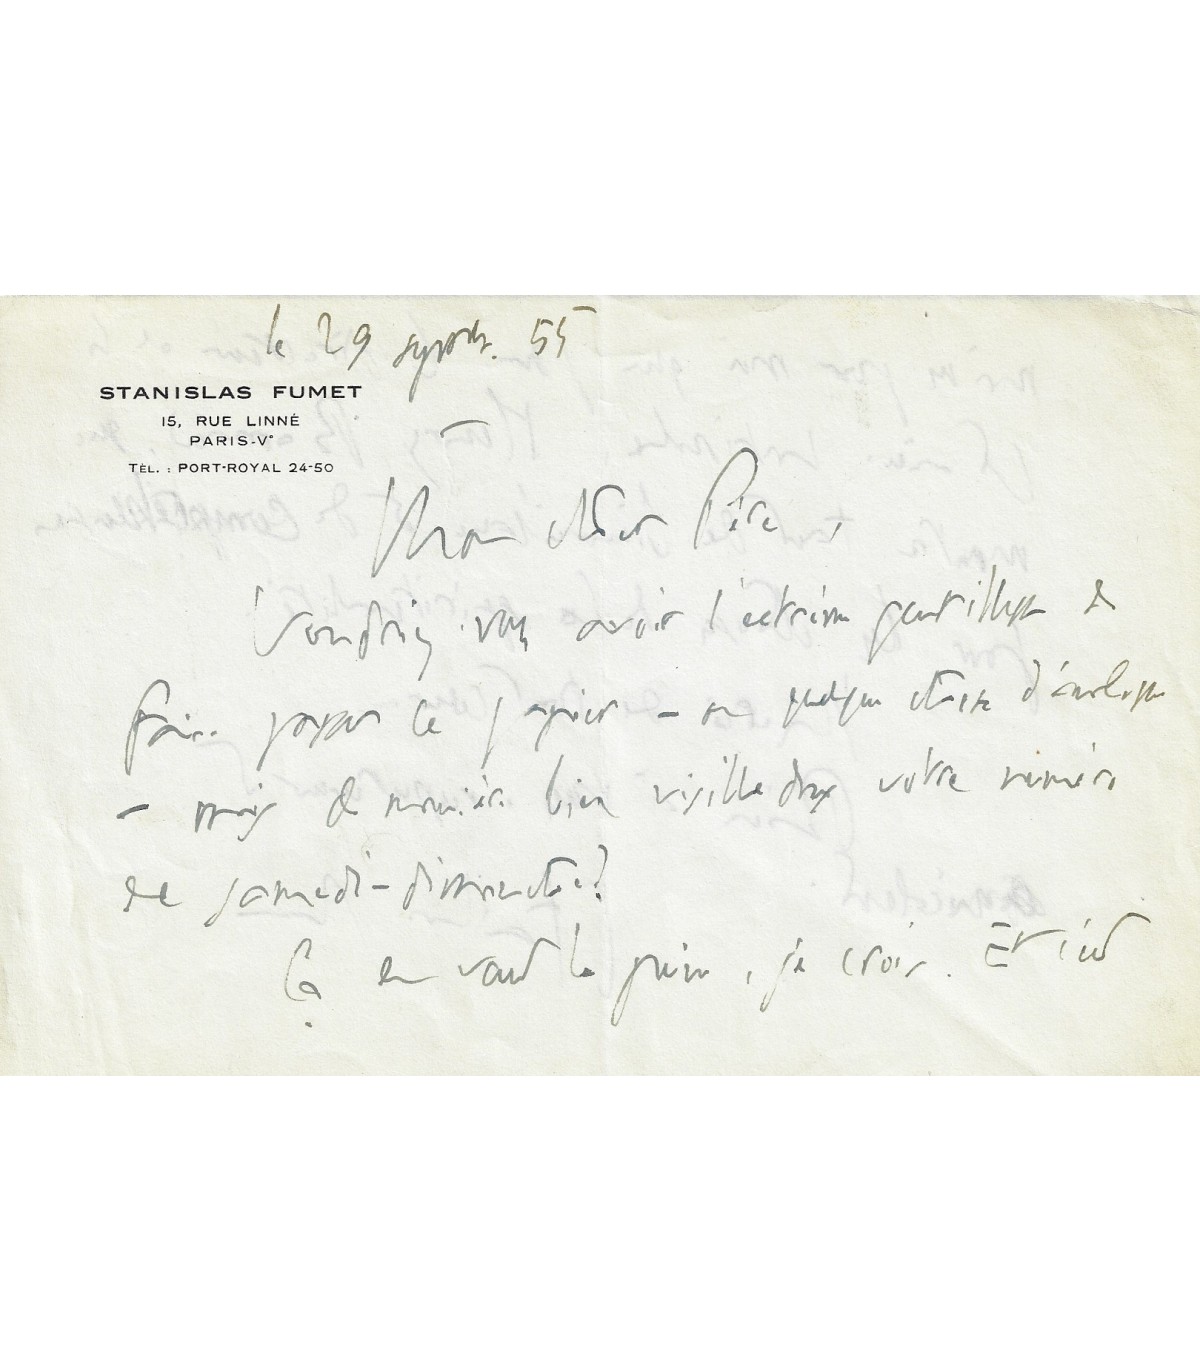 le 29 septembre 55
STANISLAS FUMET
15, RUE LINNÉ
PARIS-V°
TÉL. : PORT-ROYAL 24-50
Mon cher Père,
Voudriez-vous avoir l'extrême gentillesse de
faire passer ce papier — ou quelque chose d'
— mais de manière bien visible dans votre numéro
de samedi-dimanche?
Ça en vaut la peine, je crois. Et c'est